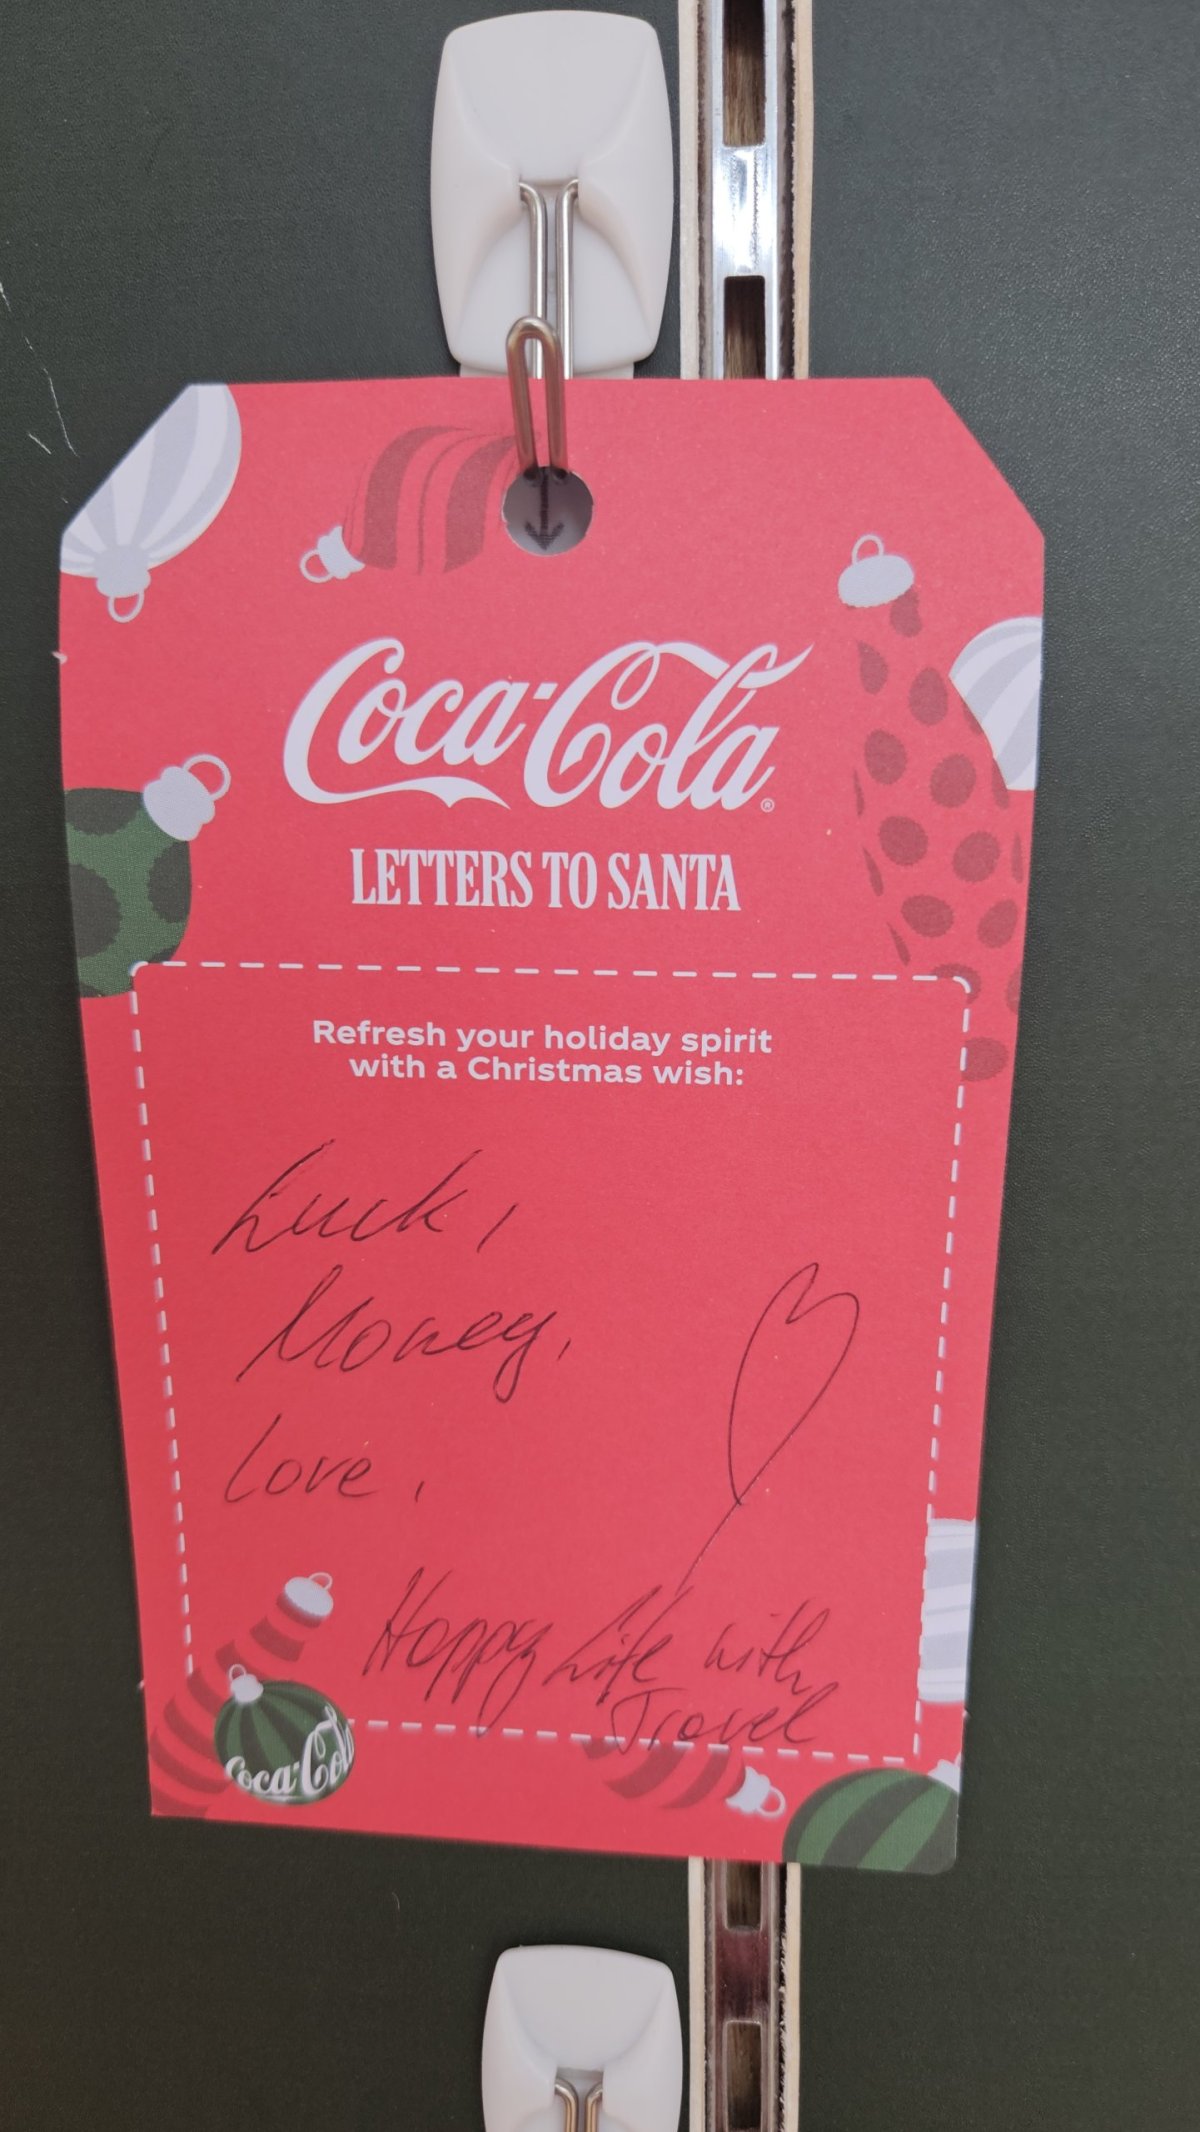 Coca-Cola®
LETTERS TO SANTA
Refresh your holiday spirit
with a Christmas wish:
Luck,
Money,
Love,
Happy Life with
Travel
Coca-Cola